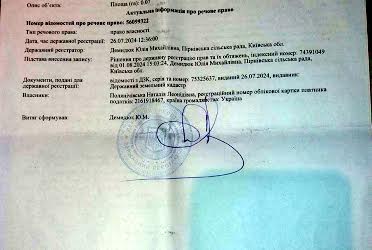 Опис об'єкта: Площа (га): 0.07
Актуальна інформація про речове право
Номер відомостей про речове право: 56099322
Тип речового права: право власності
Дата, час державної реєстрації: 26.07.2024 12:36:00
Державний реєстратор: Демидюк Юлія Михайлівна, Пірнівська сільська рада, Київська обл.
Підстава внесення запису: Рішення про державну реєстрацію прав та їх обтяжень, індексний номер: 74391049
від 01.08.2024 15:03:24, Демидюк Юлія Михайлівна, Пірнівська сільська рада,
Київська обл.
Документи, подані для державної реєстрації: відомості з ДЗК, серія та номер: 75325637, виданий 26.07.2024, видавник:
Державний земельний кадастр
Власники: Наталія Леонідівна, реєстраційний номер облікової картки платника
податків: 2161918467, країна громадянства: Україна
Витяг сформував: Демидюк Ю.М.